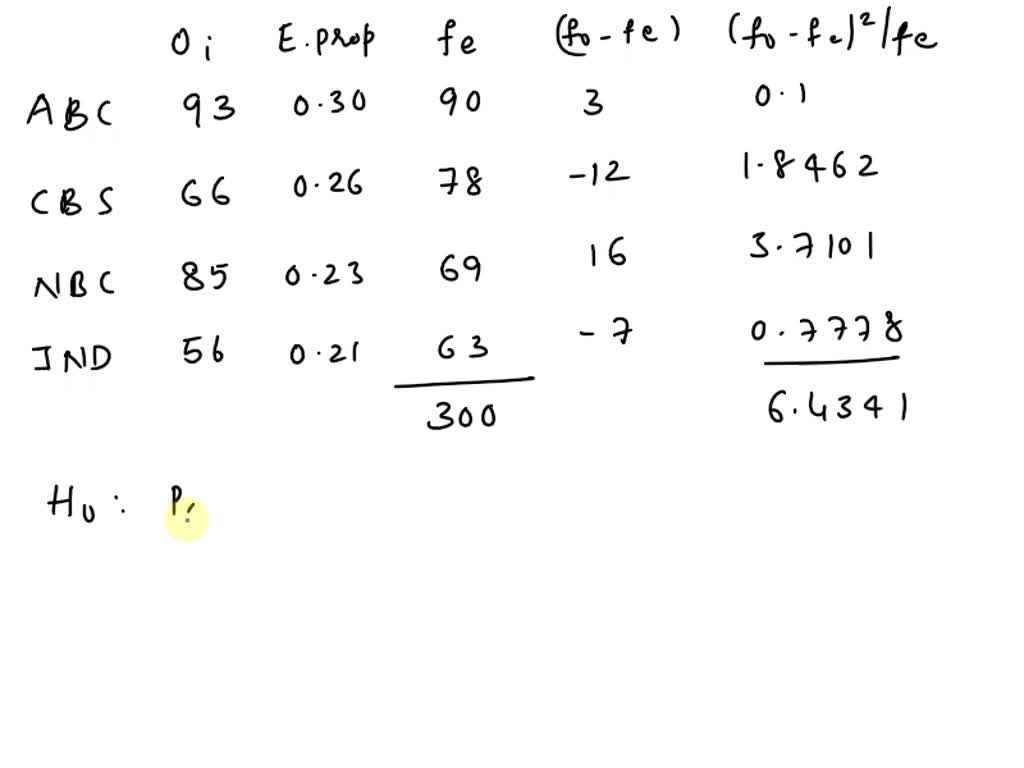 Oi E. prop fe (fo - fe) (fo - fe)²/fe
ABC 93 0.30 90 3 0.1
CBS 66 0.26 78 -12 1.8462
NBC 85 0.23 69 16 3.7101
IND 56 0.21 63 -7 0.7778
300 6.4341
H0 : P